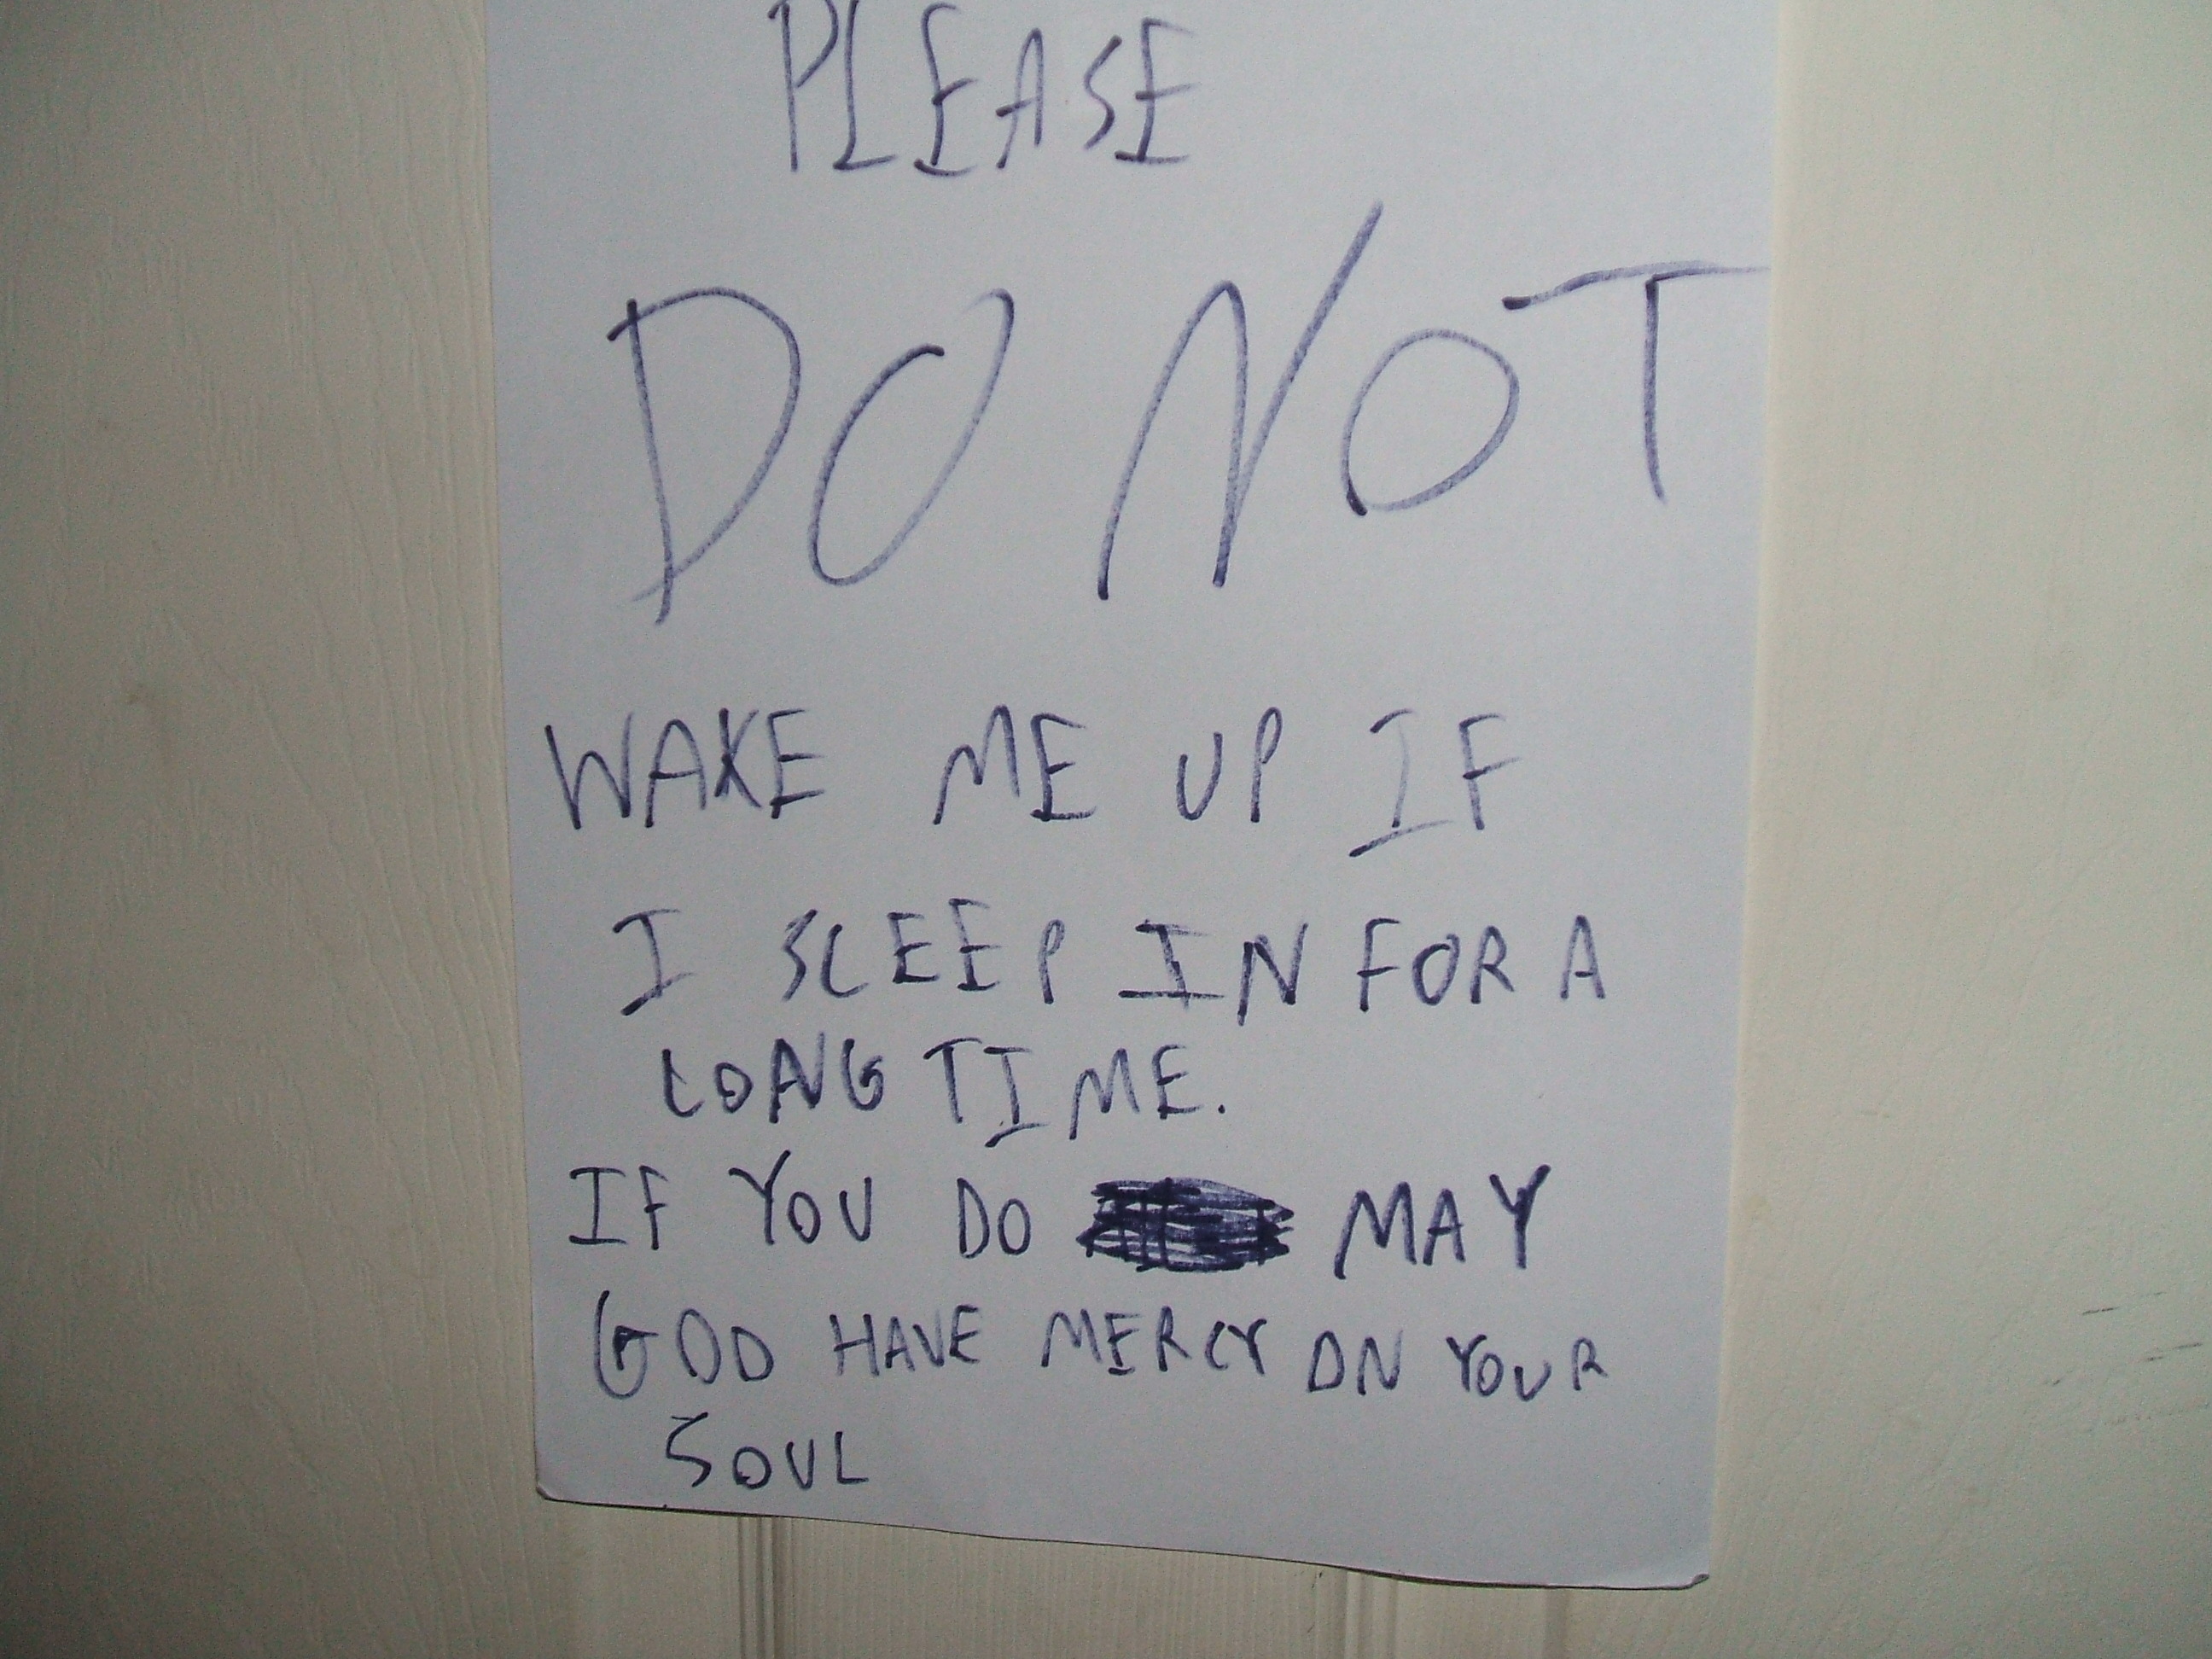 PLEASE
DO NOT
WAKE ME UP IF
I SLEEP IN FOR A
LONG TIME.
IF YOU DO MAY
GOD HAVE MERCY ON YOUR
SOUL